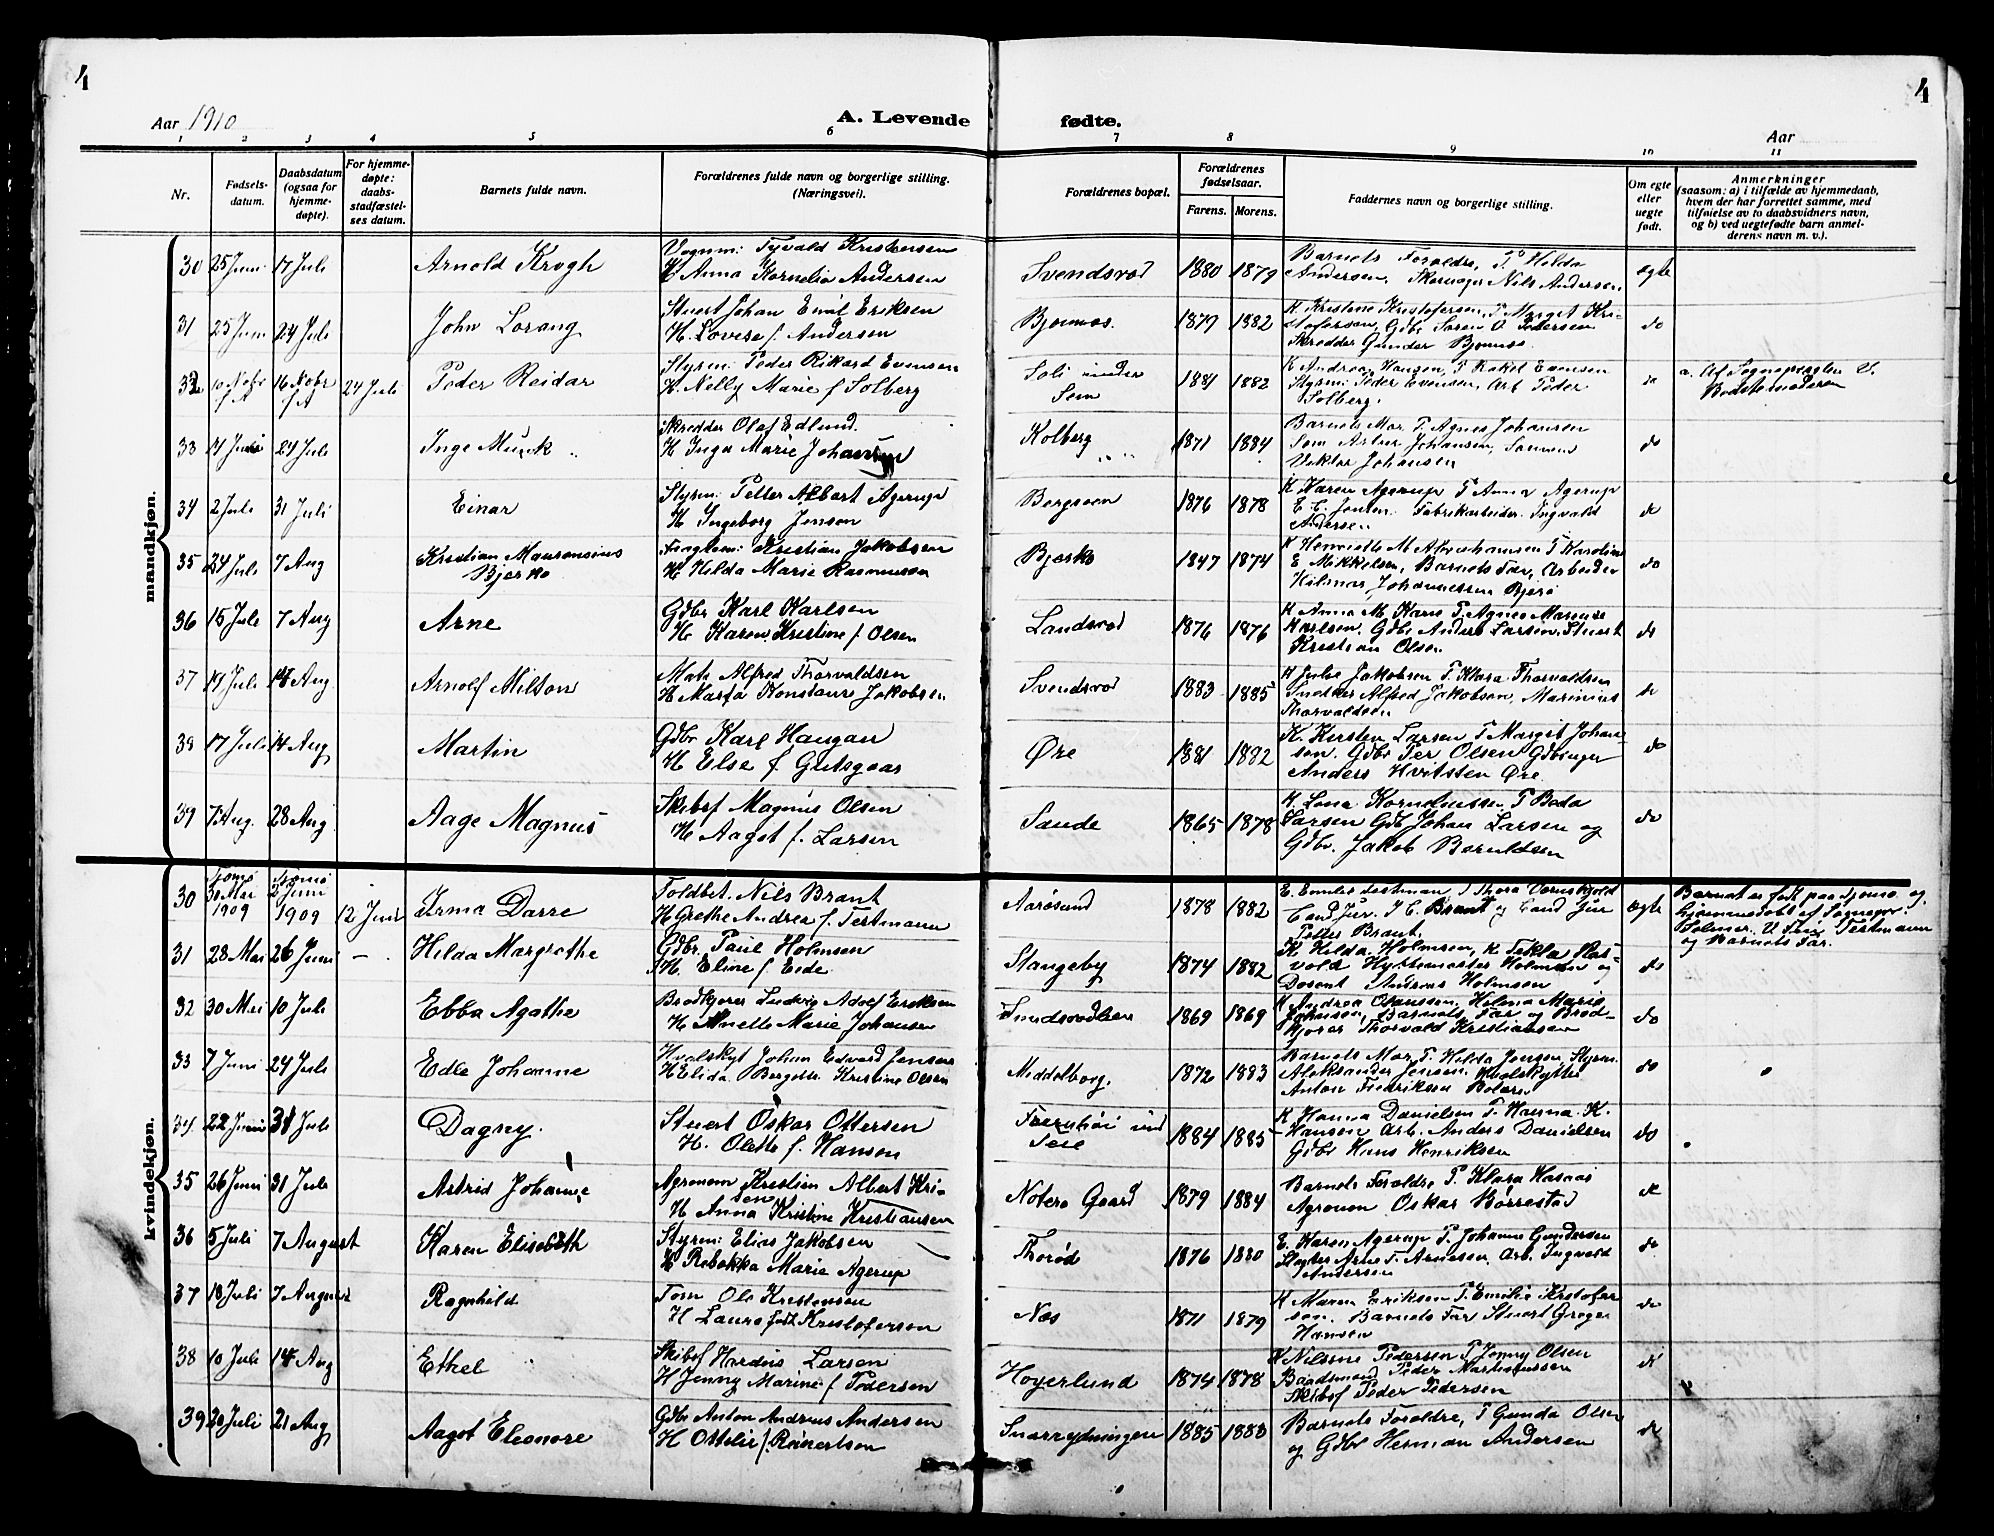 4
4
Aar 1910
A. Levende fødte.
Aar
1 2 3 4 5 6 7 8 9 10 11
Nr.
Fødsels-
datum.
Daabsdatum
(ogsaa for
hjemme-
døpte).
For hjemme-
døpte:
daabs-
stadfæstel-
ses datum.
Barnets fulde navn.
Forældrenes fulde navn og borgerlige stilling.
(Næringsvei).
Forældrenes bopæl.
Forældrenes
fødselsaar.
Farens. Morens.
Faddernes navn og borgerlige stilling.
Om egte
eller
uegte
født.
Anmerkninger
(saasom: a) i tilfælde av hjemmedaab,
hvem der har forrettet samme, med
tilføielse av to daabsvidners navn,
og b) ved uegtefødte barn anmel-
derens navn m. v.).
mandkjøn.
30 25 Juni 17 Juli Arnold Krogh
Tyvald Kristensen
H Anna Kornelia Andersen
Svendsrød 1880 1879
Barnets Forældre, P. Hilda
Andersen, Nils Andersen
ægte
31 25 Juni 24 Juli John Lorang
Stuert Johan Emil Eriksen
H. Lovise f. Andersen
Bjørnnes. 1879 1882
K. Kristine Kristofersen, P Margit Kri-
stofersen, Gdbr Søren O Pedersen
Skrædder Gunder Bjønnes
do
32 10 Nobr 16 Nobr 24 Juli Peder Reidar
Styrm: Peder Rikard Evensen
H. Nelly Marie f Solberg
Soli under
Sem
1881 1882
K Andrea Hansen, P Rakel Evensen
Styrm: Peder Evensen, Arb Peder
Solberg.
do
a. Af Sognepræsten
33 24 Juli Inge Munk
Skrædder Olaf Edlund.
H Inga Marie Johansen
Kolberg 1871 1884
Barnets Mor P. Agnes Johansen
Søm Artur Johansen, Sømand
Viktor Johansen
do
34 2 Juli 31 Juli Einar
Styrm: Petter Albert Agerup
H Ingeborg Jensen
Bergsoen 1876 1878
K Karen Agerup P Anna Agerup
E. C. Jensen Fabrikarbeider Ingvald
Andersen
do
35 24 Juli 7 Aug Kristian Maurensius
Bjerkø
Kristian Jakobsen
H Hilda Marie Rasmussen
Bjerkø 1847 1874
K Henriette M Abrahamsen P Karoline
E Mikkelsen, Barnets Far, Arbeider
Hilmar Johannessen Bjerø
do
36 15 Juli 7 Aug Arne
Gdbr Karl Karlsen
H. Karen Kristine f. Olsen
Landsrød 1876 1876
K Anna M. Karls P. Agnes Marensé
Karlsen, Gdbr Anders Larsen, Stuert
Kristian Olsen
do
37 19 Juli 14 Aug. Arnolf Milton
Mats Alfred Thorvaldsen
H Marta Konstance Jakobsen
Svendsrød 1883 1885
K Julie Jakobsen P. Klara Thorvaldsen
Snedker Alfred Jakobsen, Marinius
Thorvaldsen
do
38 17 Juli 14 Aug Martin
Gdbr Karl Haugan
H Else f. Gutsgaar
Øre 1881 1882
K. Kirsten Larsen P Margit Johan-
sen. Gdbr Per Olsen Gdbruger
Anders Hvitsten Øre
do
39 7 Aug. 28 Aug Aage Magnus
Skibsf Magnus Olsen
H. Aagot f. Larsen
Sande 1865 1878
K. Lena Korneliussen P Boda
Larsen Gdb Johan Larsen og
Gdbr. Jakob Berntsen
do
kvindekjøn.
30 Tjømø
31 Mai
1909
Tjømø
2 Juni
1909
12 Juni Irma Darre
Toldbet. Nils Brant
H Grethe Andrea f. Testmann
Aarøsund 1878 1882
E. Emilie Testman P Thora Vernskjold
Cand Jur. I C. Brant og Cand Jur
Petter Brant.
ægte
Barnet er født paa Tjømø og
hjemmedøbt af Sognepr.
Selmer. V. Frue Testmann
og Barnets Far.
31 28 Mai 26 Juni – Hilda Margrethe
Gdbr. Paul Holmsen
H. Eline f Eide
Stangeby 1874 1882
K Hilda Holmsen, K Tekla Ros-
vold Hyttemester Holmsen og
Dosent Andreas Holmsen
do
32 30 Mai 10 Juli Ebba Agathe
Brødkjører Ludvig Adolf Eriksen
H Anette Marie Johansen
1869 1869
K Andrea Olaussen, Helma Marie
Johnsen, Barnets Far og Brød-
kjører Thorvald Kristiansen
do
33 7 Juni 24 Juli Edle Johanne
Hvalskyt Johan Edvard Jensen
H Elida Bergette Kristine Olsen
Middelborg, 1872 1883
Barnets Mor, P. Hilda Jensen, Styrm.
Aleksander Jensen, Hvalskytter
Anton Fredriksen Bolæren
do
34 22 Juni 31 Juli Dagny.
Stuert Oskar Ottersen
H. Olette f. Hansen
Teie
1884 1885
K Hanna Danielsen P. Hanna K.
Hansen Arb. Anders Danielsen
Gdbr Hans Henriksen
do
35 26 Juni 31 Juli Astrid Johanne
Agronom Kristian Albert Kri-
H Anna Kristine Kristiansen
Noterø Gaard 1879 1884
Barnets Forældre P. Klara Hasaas
Agronom Oskar Borrestad
do
36 5 Juli 7 August Karen Elisebeth
Styrm: Elias Jakobsen
H Rebekka Marie Agerup
Thorød 1876 1880
E. Karen Agerup P. Johanne Gundersen
Slagter Arne F. Arnesen, Arb. Ingvald
Andersen
do
37 18 Juli 7 August Ragnhild
Tom Ole Kristensen
H Laura født Kristofersen
Nes 1871 1879
K Maren Eriksen P. Emilie Kristofer-
sen. Barnets Far Stuert Greger
Hansen
do
38 10 Juli 14 Aug Ethel
Skibsf Hardus Larsen
H Jenny Marine f Pedersen
Høyerlund 1874 1878
K Nilsine Pedersen P Jenny Olsen
Baadsmand Peder Martiniussen
Skibsf Peder Pedersen
do
39 20 Juli 21 Aug Aagot Eleonore
Gdbr Anton Andreas Andersen
H Ottilie f. Reinertsen
Snarrydningen 1885 1883
Barnets Forældre, P Gunda Olsen
og Gdbr Herman Andersen
do